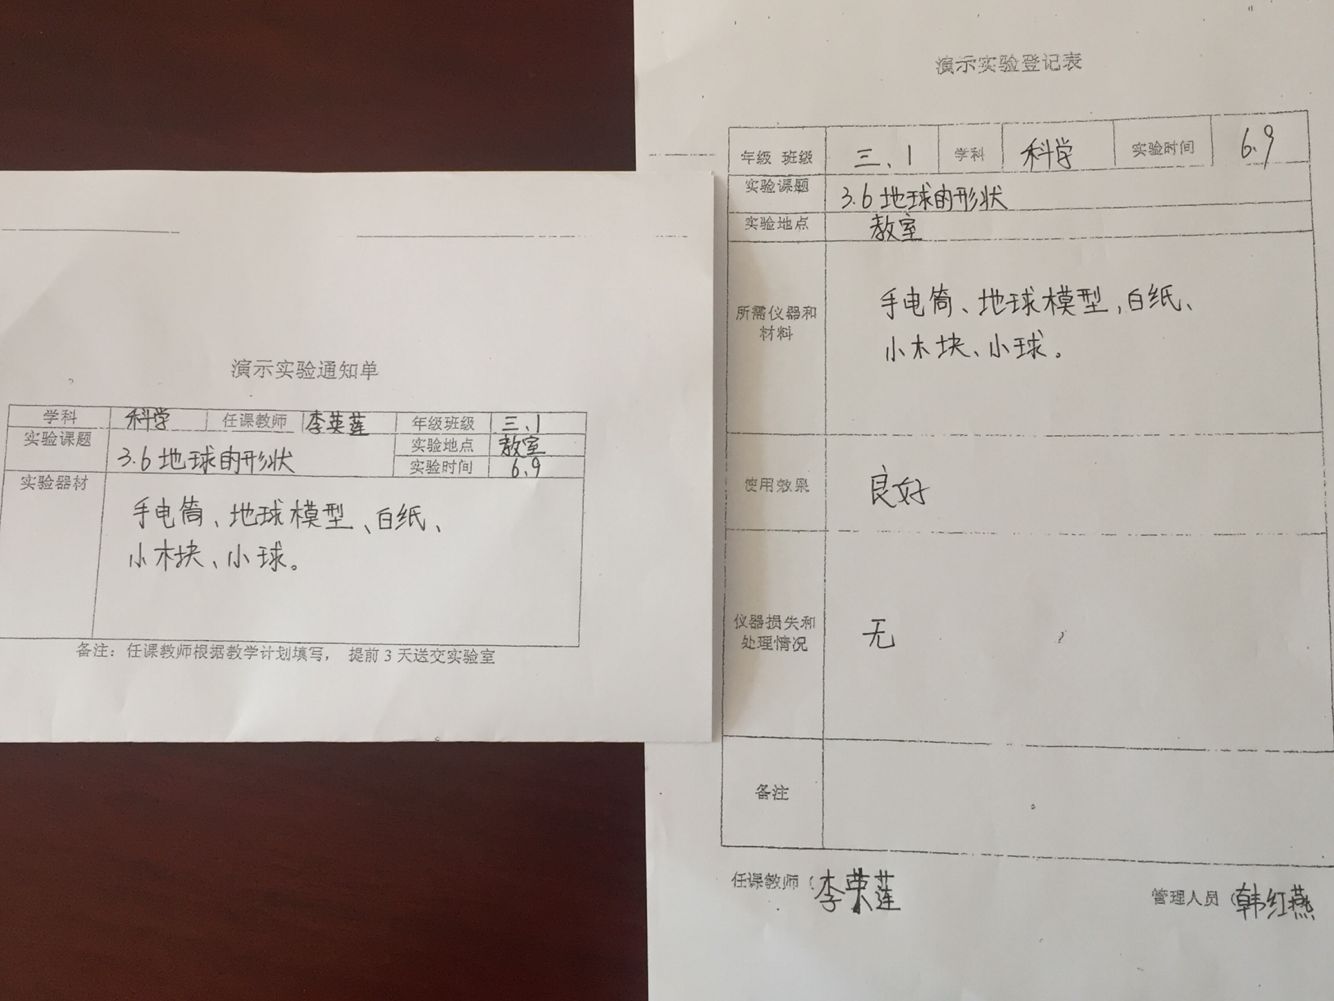 演示实验通知单
学科 科学 任课教师 李英莲 年级班级 三.1
实验课题 3.6地球的形状 实验地点 教室
实验时间 6.9
实验器材 手电筒、地球模型、白纸、
小木块、小球。
备注：任课教师根据教学计划填写， 提前3天送交实验室
演示实验登记表
年级 班级 三.1 学科 科学 实验时间 6.9
实验课题 3.6地球的形状
实验地点 教室
所需仪器和
材料
手电筒、地球模型,白纸、
小木块、小球。
使用效果 良好
仪器损失和
处理情况
无
备注
任课教师（李英莲
管理人员（韩红燕